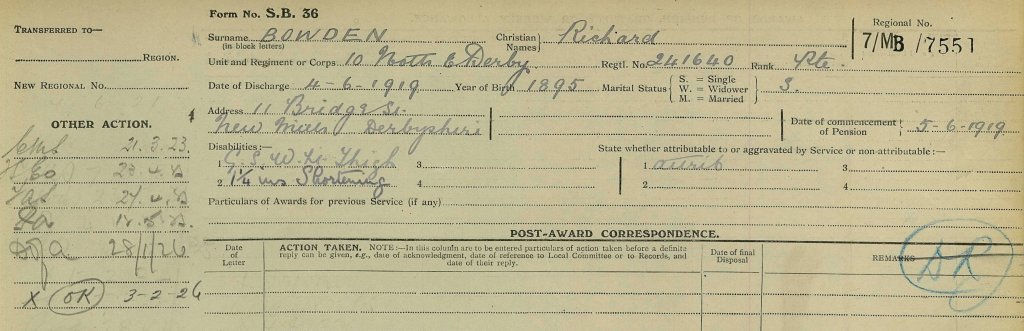 Form No. S.B. 36
TRANSFERRED TO—
REGION.
NEW REGIONAL No.
OTHER ACTION.
21.3.23
28/1/26
X OK 3-2-26
Surname BOWDEN Christian Names} Richard
(in block letters)
Regional No.
7/MB/7551
Unit and Regiment or Corps 10 Notts & Derby Regtl. No. 241640 Rank Pte.
Date of Discharge 4-6-1919 Year of Birth 1895 Marital Status { S. = Single W. = Widower M. = Married } S.
Address 11 Bridge St.
New Mills Derbyshire
Date of commencement of Pension } 5-6-1919
Disabilities:—
State whether attributable to or aggravated by Service or non-attributable:—
1 G.S.W. Thigh 3. 1 attrib 3.
2. 1¼ ins Shortening 4. 2. 4.
Particulars of Awards for previous Service (if any)
POST-AWARD CORRESPONDENCE.
Date of Letter
ACTION TAKEN. NOTE:—In this column are to be entered particulars of action taken before a definite
reply can be given, e.g., date of acknowledgment, date of reference to Local Committee or to Records, and
date of their reply.
Date of final Disposal
REMARKS
DR